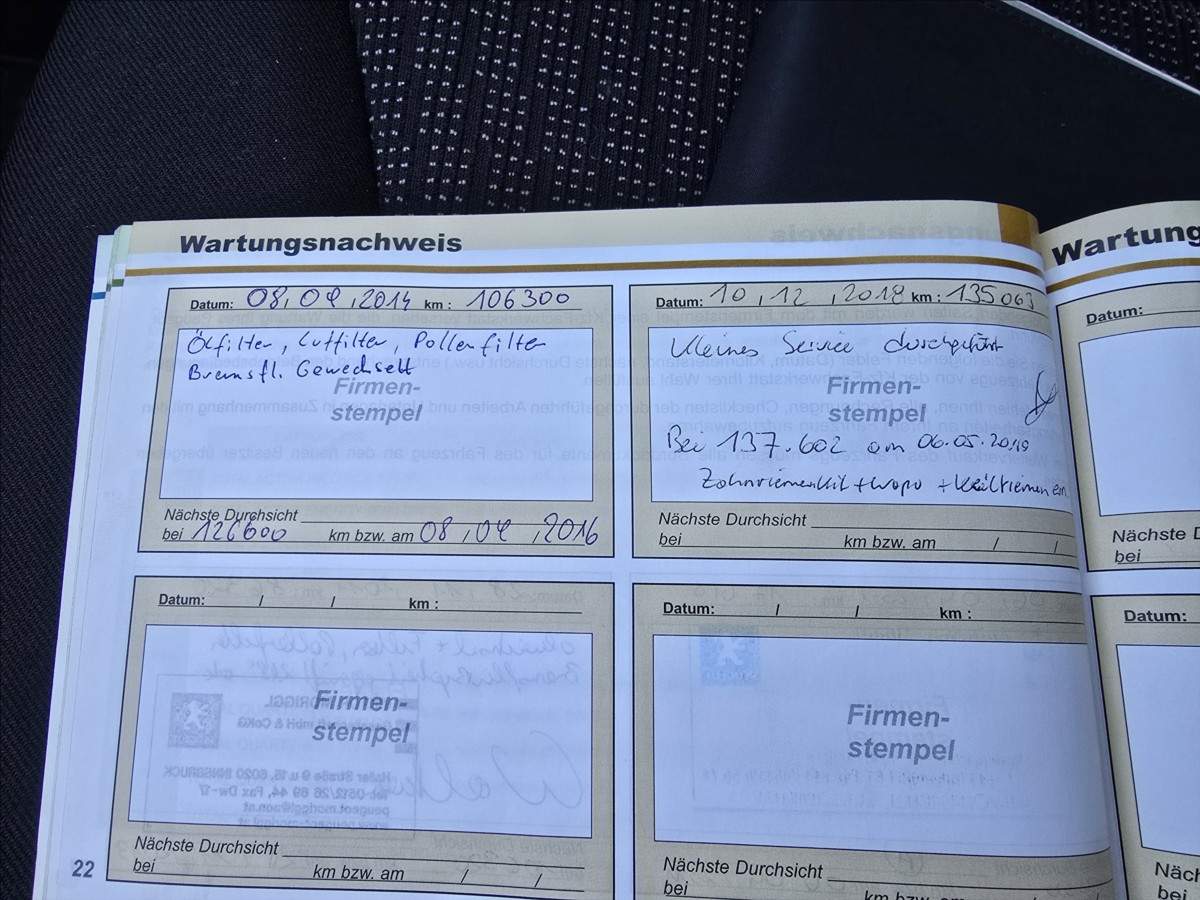 Wartungsnachweis
Datum: 08, 04, 2014 km: 106300
Ölfilter, Luftfilter, Pollenfilter
Bremsfl. Gewechselt
Firmen-
stempel
Nächste Durchsicht
bei 126600 km bzw. am 08, 04, 2016
Datum: 10, 12, 2018 km: 135063
Kleines Service durchgeführt
Firmen-
stempel
Bei 137.602 am 06.05.2019
Zahnriemenkit + Wapu + Keilriemen ern
Nächste Durchsicht
bei km bzw. am / /
Datum: / / km :
Firmen-
stempel
Nächste Durchsicht
bei km bzw. am / /
Datum: / / km :
Firmen-
stempel
Nächste Durchsicht
bei km bzw. am /
22
Wartung
Datum:
Nächste D
bei
Datum:
Näch
bei